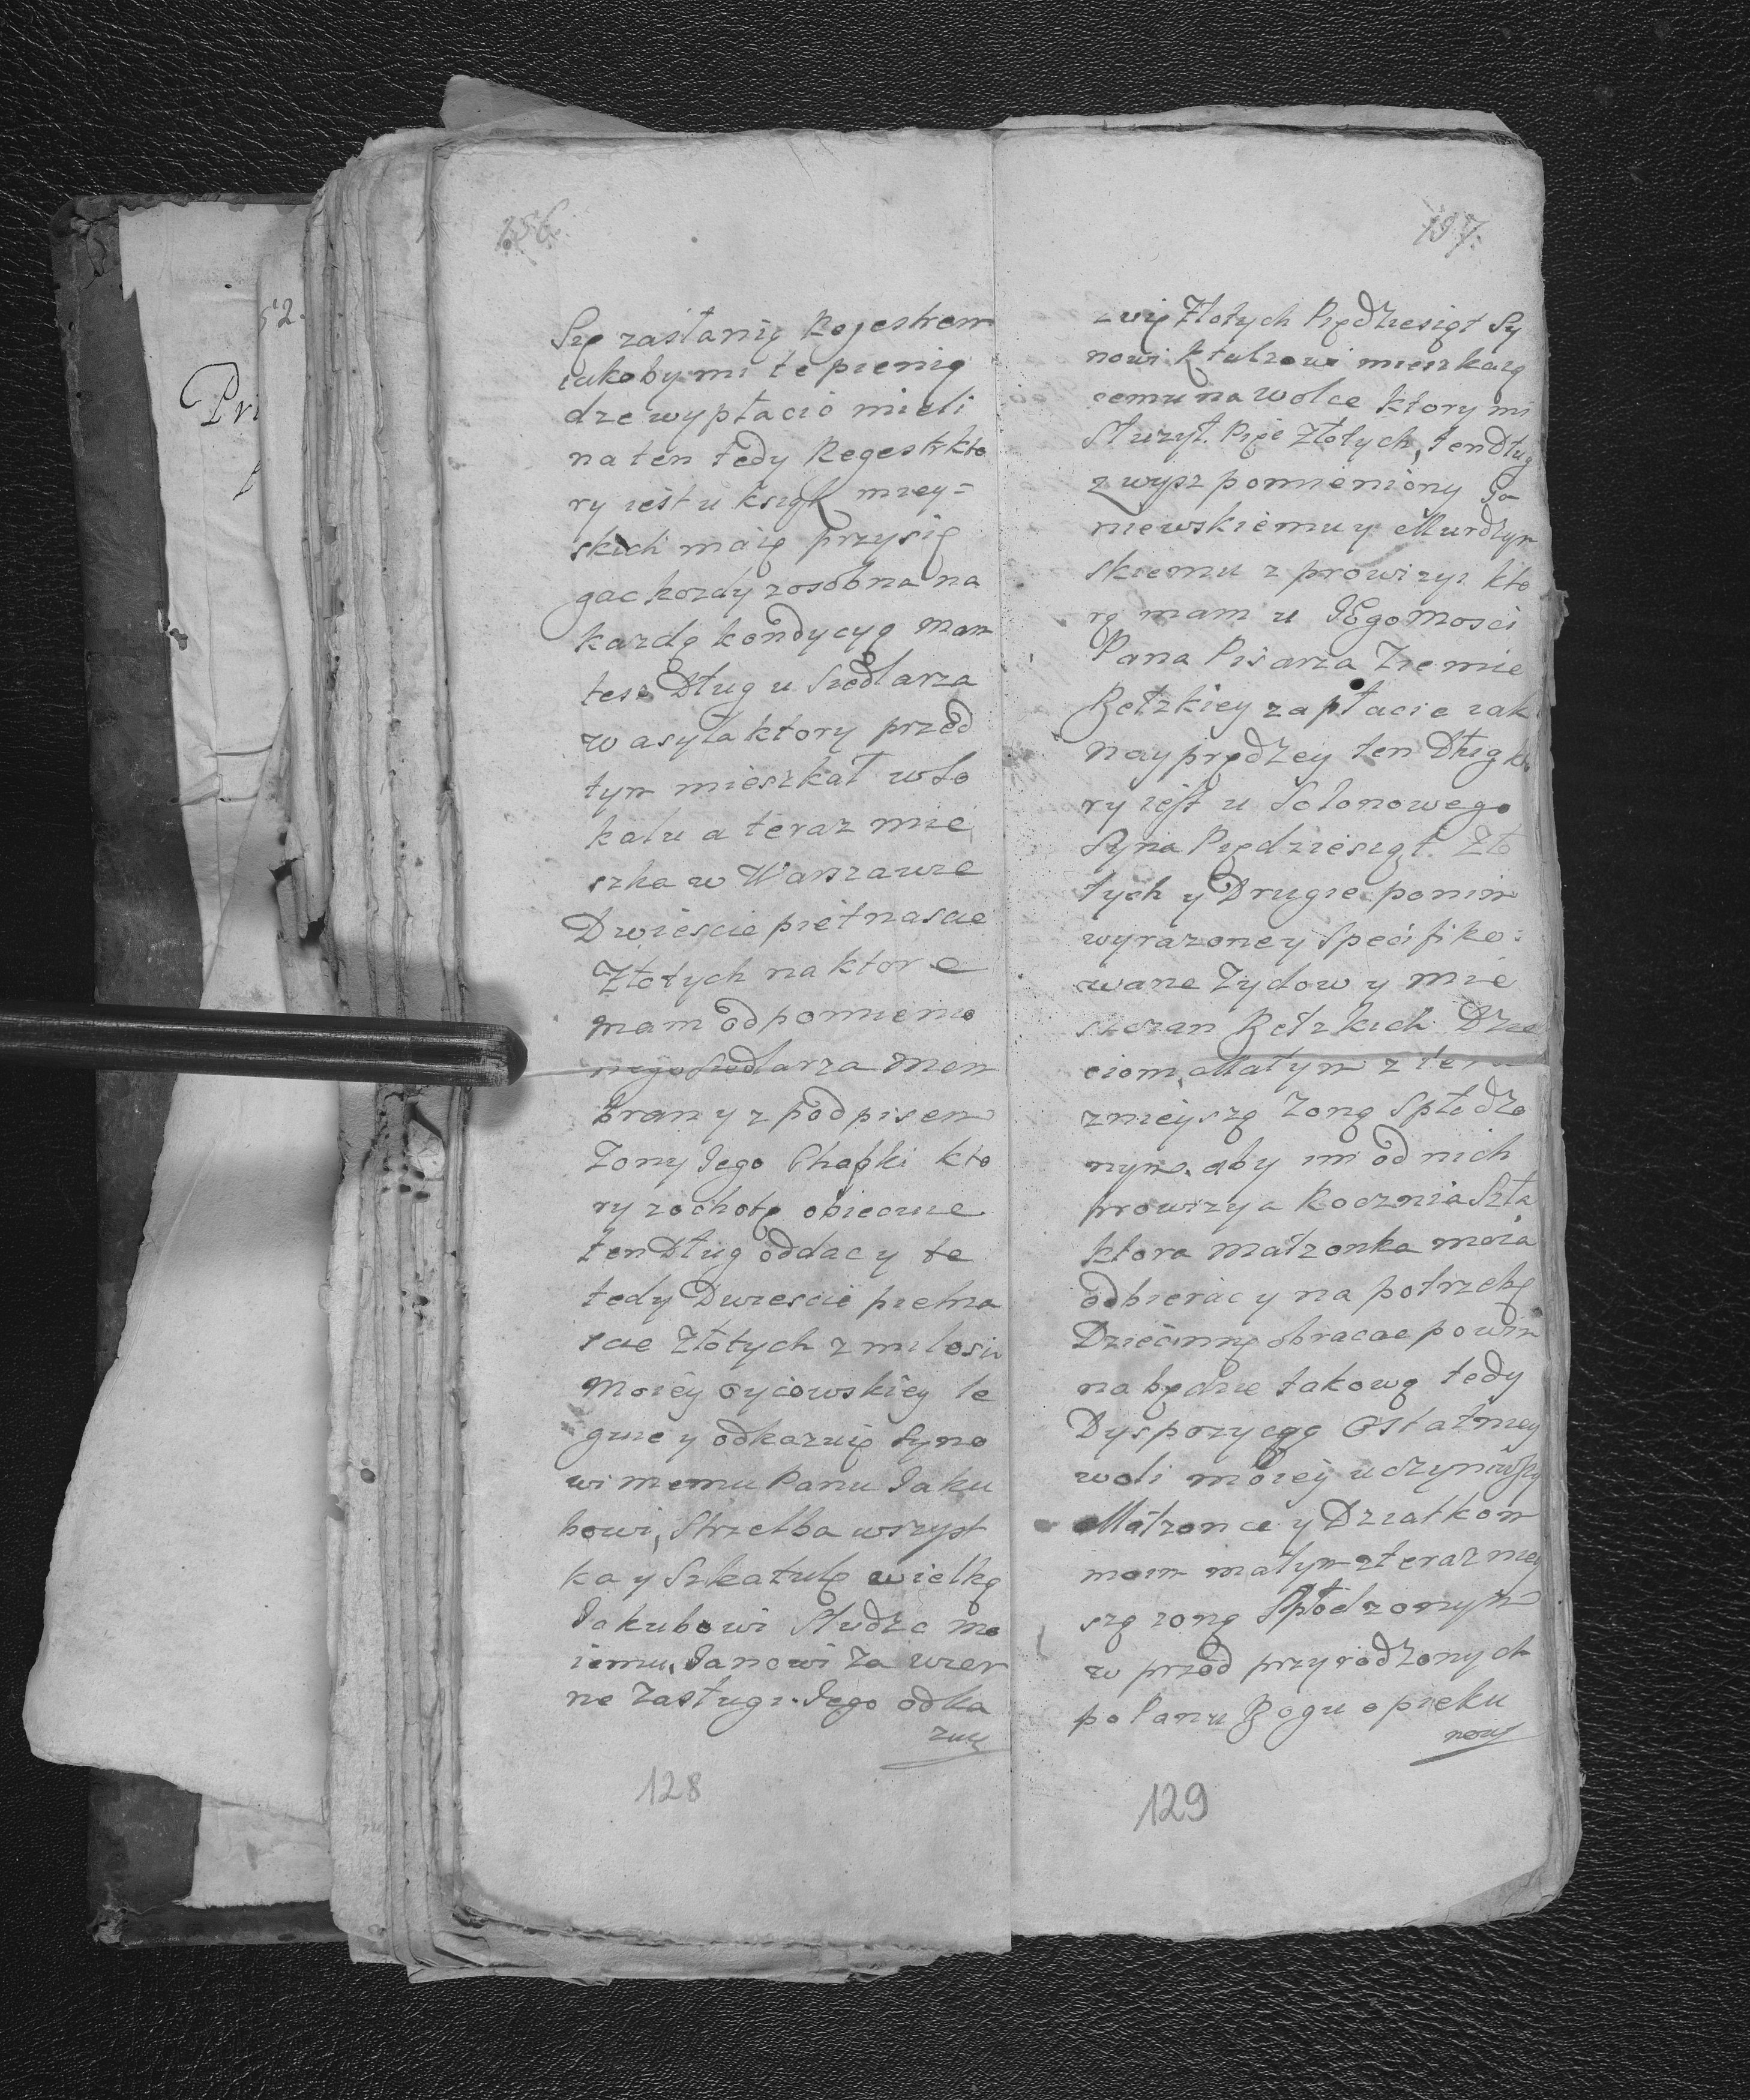 156.
Się zasłanię Rejestrem
iakoby mi te pienią
dze wypłacić mieli
na ten tedy Regestr kto
ry iest u ksiąk miey=
skich maią przysię
gac kozdy zosobna na
kazdą kondycyą Mam
tesz Dług u Siedlarza
w asyla ktory przed
tym mieszkał w So
kalu a teraz mie
szka w Warszawie
Dwiescie pietnascie
Złotych na ktore
mam od pomienio
nego Siedlarza Mem
bran y z podpisem
Zony Jego Chapki kto
ry zochotę obiecuie
ten Dług oddac y te
tedy Dwiescie pietna
scie Złotych z milosci
Moiey oycowskiey le
guie y odkazuię Syno
wi memu Panu Jaku
bowi, Strzelba wszyst
ka y Szkatułę wielką
Jakubowi Słudze mo
iemu, Janowi za wier
ne Zasługi. Jego odka
zuię
128
52.
Pri
137.
zuię Złotych Pięдziesiąt Sy
nowi mieszkaią
cemu na Wolce ktory mi
służył. Pięć Złotych, ten Dług
z wysz pomieniony Ja
niewskiemu y Murdzyn
skiemu z prowizyi kto
rą mam u JEgomosci
Pana Pisarza Ziemie
Bełzkiey zapłacic iak
nayprędzey ten Dług kto
ry iest u Solonowego
Syna Pięcdziesiąt Zło
tych y Drugie ponim
wyrazone y specifiko:
wane Zydow y mie
szczan Bełzkich Dzie
ciom, Małym z tera
znieyszą Zoną Spłodzo
nym. aby im od nich
prowizya Roczna Szła
ktora Małzonka moia
odbierac y na potrzebę
Dziecinnę obracac powin
na będzie takową tedy
Dyspozycyą Ostatniey
woli moiey uczyniwszy
Małzonce y Dziatkom
moim małym z teraznie
szą zoną Spłodzonym
w przod przyrodzonych
po Panu Bogu opieku
now
129